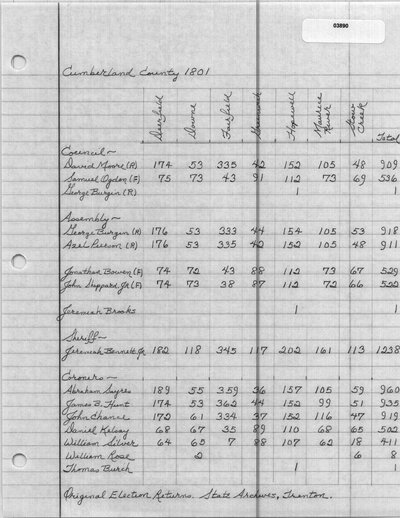 03890
Cumberland County 1801
Deerfield Downe Fairfield Greenwich Hopewell Maurice River Stow Creek Total
Council~
David Moore (R) 174 53 335 42 152 105 48 909
Samuel Ogden (F) 75 73 43 91 112 73 69 536
George Burgin (R) 1
Assembly~
George Burgin (R) 176 53 333 44 154 105 53 918
Azel Pierson (R) 176 53 335 42 152 105 48 911
Jonathan Bowen (F) 74 72 43 88 112 73 67 529
John Sheppard Jr (F) 74 73 38 87 112 72 66 522
Jeremiah Brooks 1 1
Sheriff~
Jeremiah Bennett Jr. 182 118 345 117 202 161 113 1238
Coroners~
Abraham Sayres 189 55 359 36 157 105 59 960
James B. Hunt 174 53 362 44 152 99 51 935
John Chance 172 61 334 37 152 116 47 919
Daniel Kelsay 68 67 35 89 110 68 65 502
William Silver 64 65 7 88 107 62 18 411
William Rose 2 6 8
Thomas Burch 1 1
Original Election Returns. State Archives, Trenton.